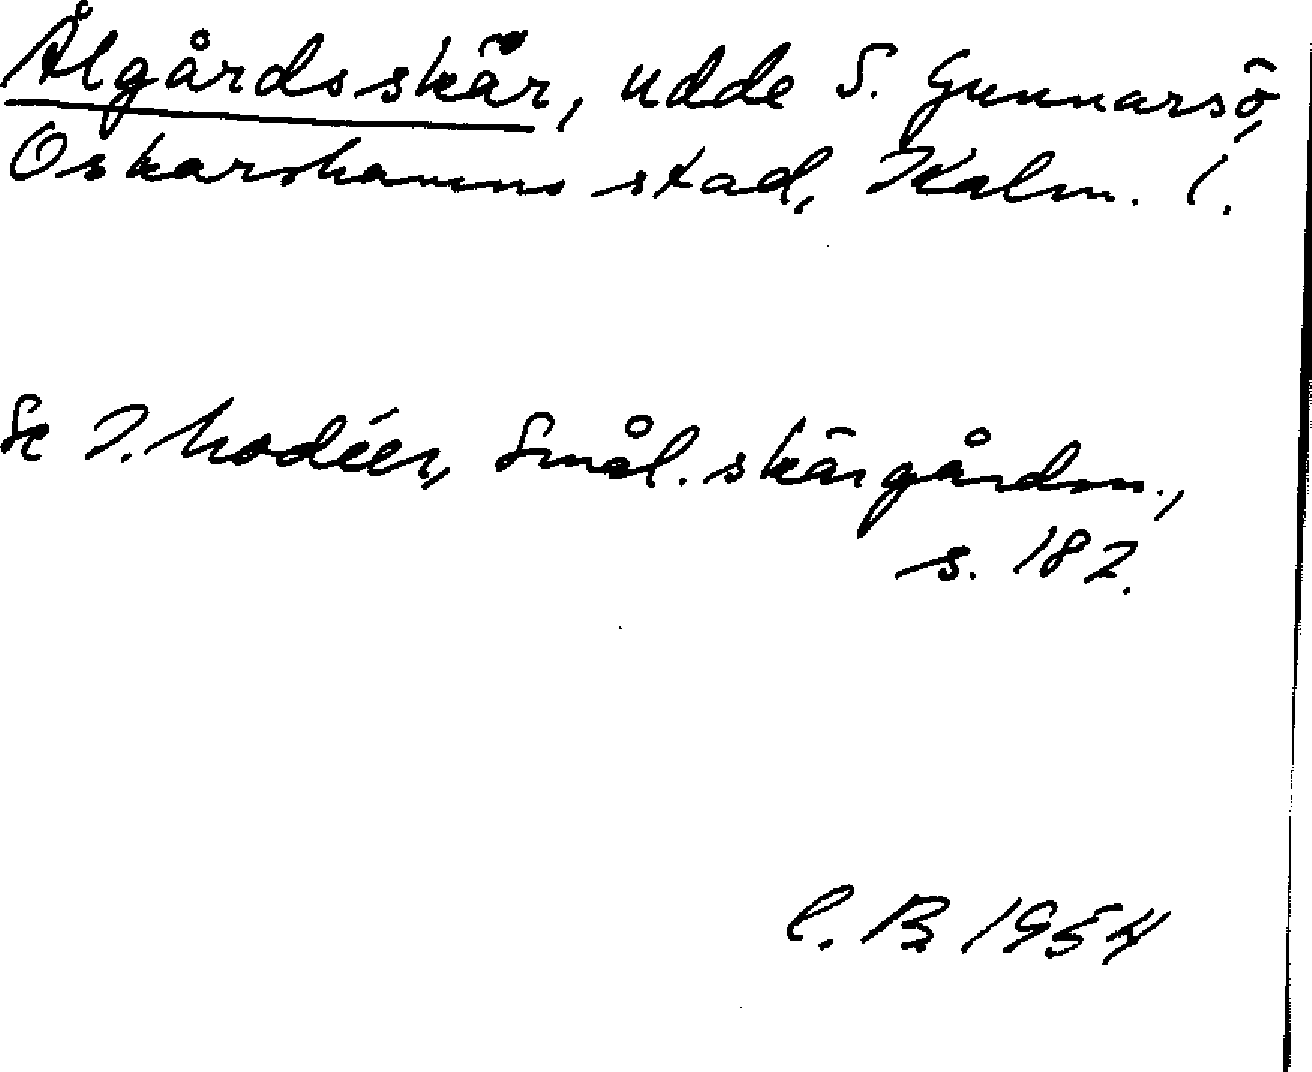 Ålgårdsskär, udde S. Gunnarsö,
Oskarshamns stad, Kalm. l.
Se I. Modéer, Smål. skärgårdsn.,
s. 182.
C. B 1954